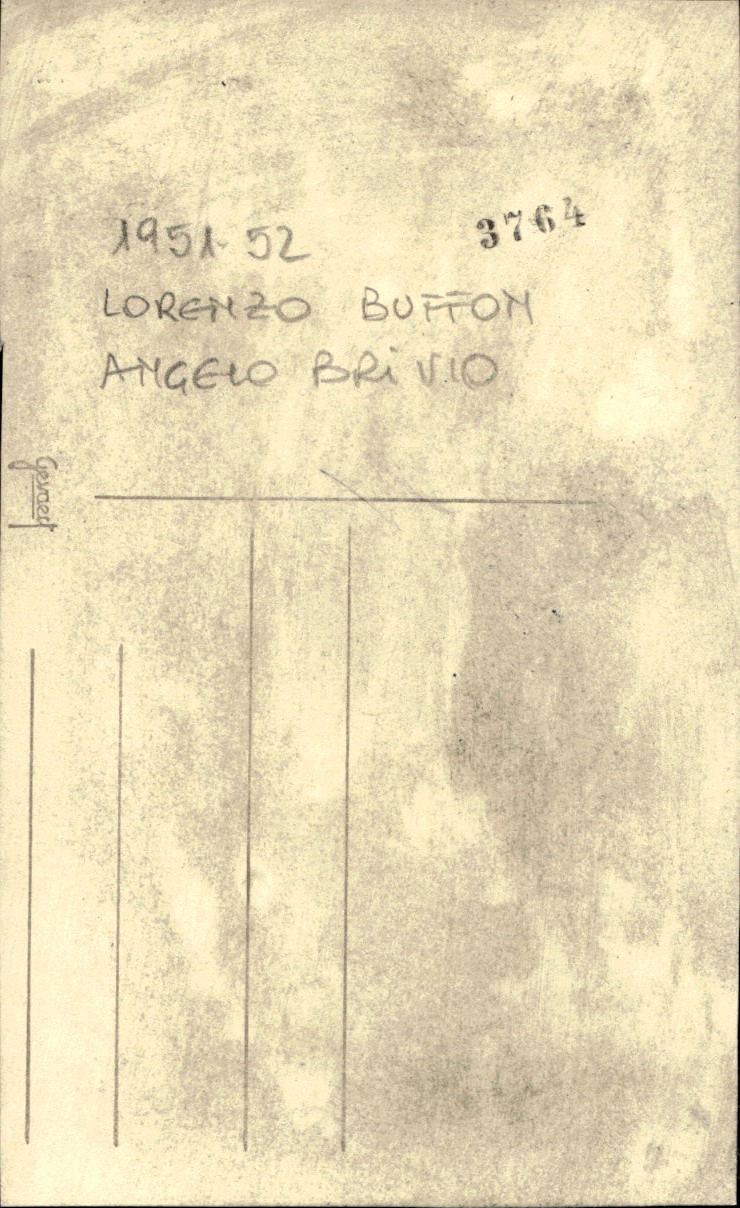 1951-52
3764
LORENZO BUFFON
ANGELO BRIVIO
Gevaert